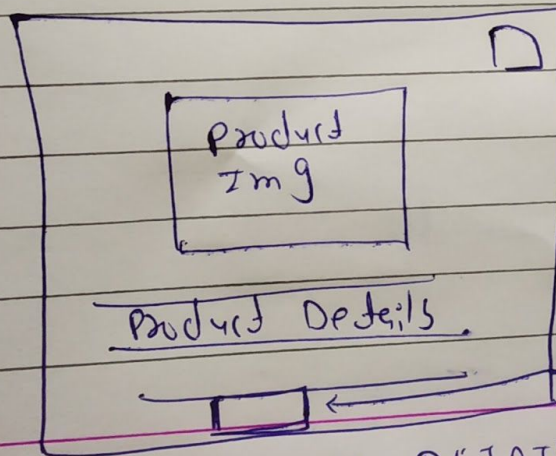 Product
Img
Product Details